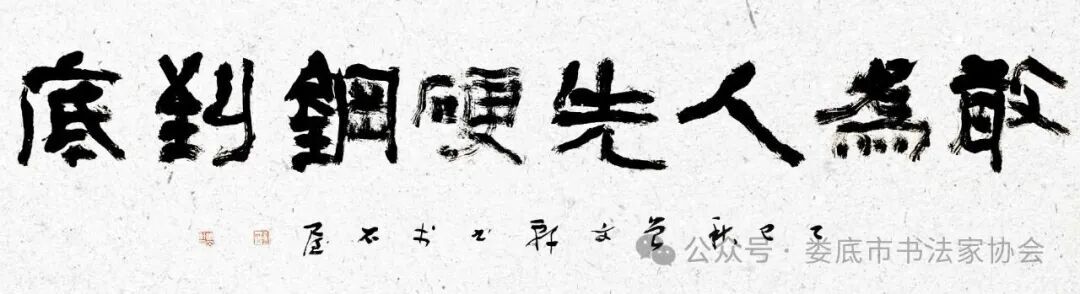 敢為人先硬鋼到底
乙巳秋曾文軒書於石屋
公众号·娄底市书法家协会